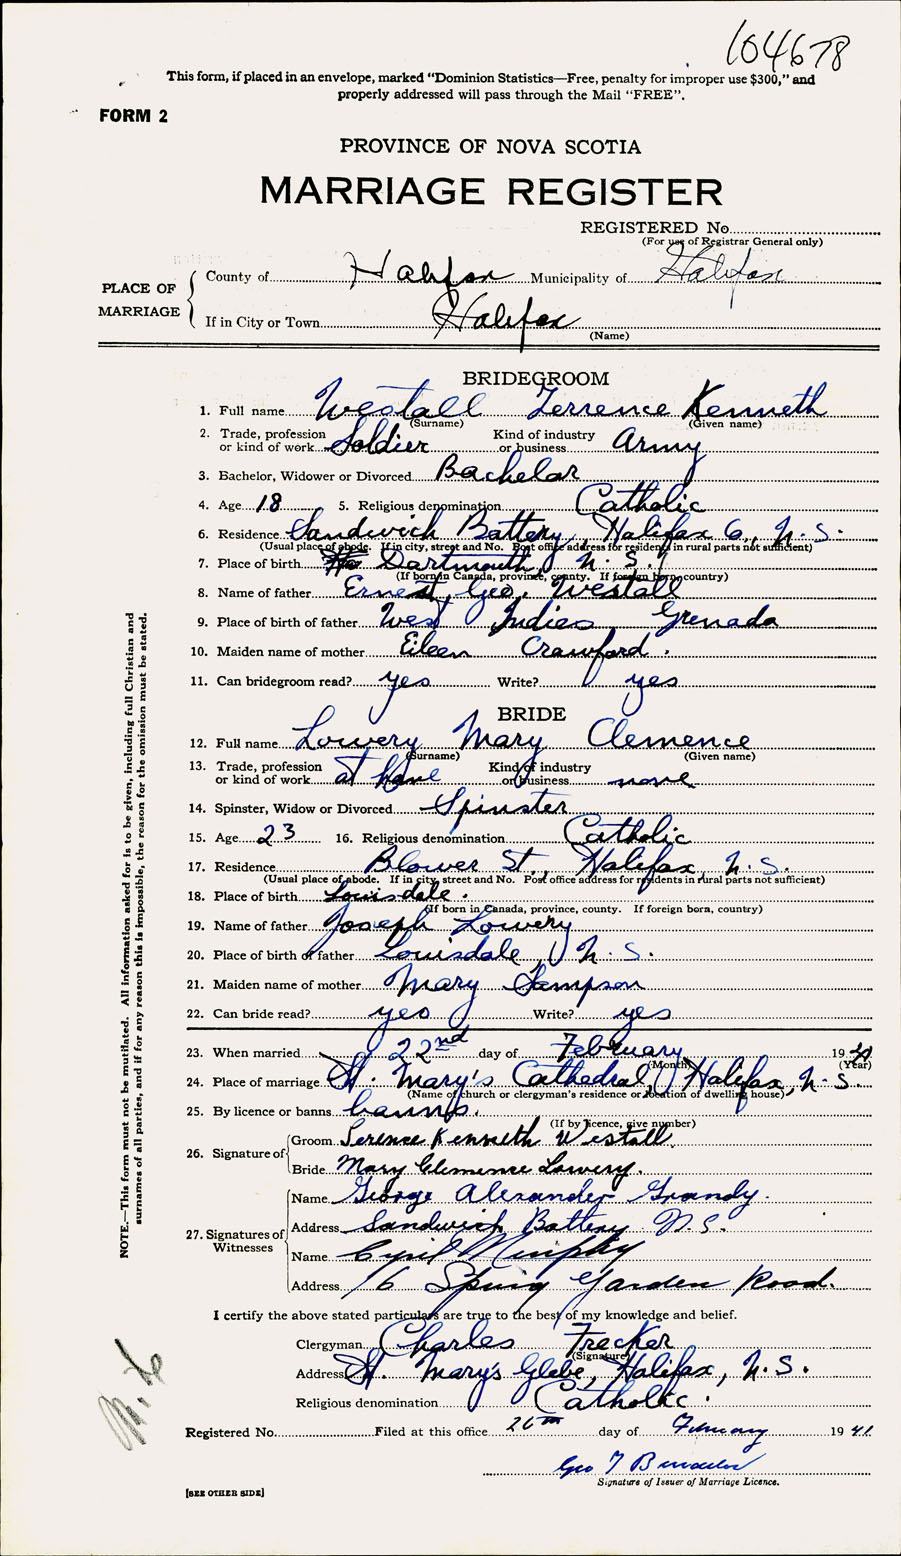 104678
This form, if placed in an envelope, marked “Dominion Statistics—Free, penalty for improper use $300,” and
properly addressed will pass through the Mail “FREE”.
FORM 2
PROVINCE OF NOVA SCOTIA
MARRIAGE REGISTER
REGISTERED No.
(For use of Registrar General only)
PLACE OF MARRIAGE
County of Halifax Municipality of Halifax
If in City or Town Halifax
(Name)
BRIDEGROOM
1. Full name Westall Terrence Kenneth
(Surname) (Given name)
2. Trade, profession or kind of work Soldier Kind of industry or business Army
3. Bachelor, Widower or Divorced Bachelor
4. Age 18 5. Religious denomination Catholic
6. Residence Sandwich Battery, Halifax Co., N.S.
(Usual place of abode. If in city, street and No. Post office address for residents in rural parts not sufficient)
7. Place of birth Dartmouth, N.S.
(If born in Canada, province, county. If foreign born, country)
8. Name of father Ernest Geo. Westall
9. Place of birth of father West Indies, Grenada
10. Maiden name of mother Eileen Crawford.
11. Can bridegroom read? yes Write? yes
BRIDE
12. Full name Lowery Mary Clemence
(Surname) (Given name)
13. Trade, profession or kind of work at home Kind of industry or business none
14. Spinster, Widow or Divorced Spinster
15. Age 23 16. Religious denomination Catholic
17. Residence Blower St., Halifax, N.S.
(Usual place of abode. If in city, street and No. Post office address for residents in rural parts not sufficient)
18. Place of birth Louisdale.
(If born in Canada, province, county. If foreign born, country)
19. Name of father Joseph Lowery
20. Place of birth of father Louisdale, N.S.
21. Maiden name of mother Mary Sampson
22. Can bride read? yes Write? yes
23. When married 22nd day of February 19
(Month) (Year)
24. Place of marriage St. Mary's Cathedral, Halifax, N.S.
(Name of church or clergyman's residence or location of dwelling house)
25. By licence or banns banns.
(If by licence, give number)
26. Signature of
Groom Terence Kenneth Westall
Bride Mary Clemence Lowery.
27. Signatures of Witnesses
Name George Alexander Grandy.
Address Sandwich Battery N.S.
Name Cyril Murphy
Address 76 Spring Garden Road.
I certify the above stated particulars are true to the best of my knowledge and belief.
Clergyman Charles Frecker
(Signature)
Address St. Mary's Glebe, Halifax, N.S.
Religious denomination Catholic.
Registered No. Filed at this office 26th day of February 1941
Geo T
Signature of Issuer of Marriage Licence.
[SEE OTHER SIDE]
NOTE.—This form must not be mutilated. All information asked for is to be given, including full Christian and
surnames of all parties, and if for any reason this is impossible, the reason for the omission must be stated.